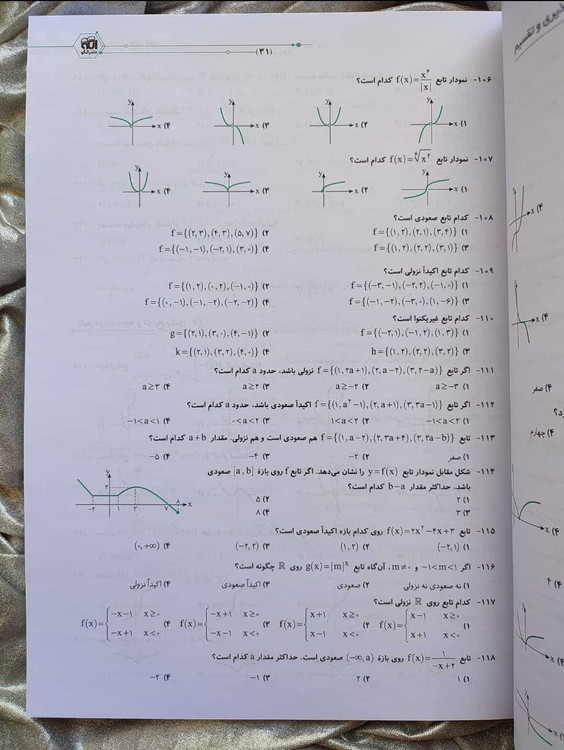 (۳۱)
۱۰۶- نمودار تابع f(x)=x³/|x| کدام است؟
۱) ۲) ۳) ۴)
۱۰۷- نمودار تابع کدام است؟
۱) ۲) ۳) ۴)
۱۰۸- کدام تابع صعودی است؟
۱) f={(۱,۲),(۲,۱),(۳,۴)} ۲) f={(۲,۳),(۴,۳),(۵,۷)}
۳) f={(۱,۲),(۲,۲),(۳,۱)} ۴) f={(-۱,-۱),(-۲,۱),(۳,۰)}
۱۰۹- کدام تابع اکیداً نزولی است؟
۱) f={(-۳,-۱),(-۲,۲),(-۱,۰)} ۲) f={(۱,۲),(۰,۲),(-۱,۰)}
۳) f={(-۱,-۲),(-۳,۰),(۱,-۶)} ۴) f={(۰,-۱),(-۱,-۲),(-۲,-۲)}
۱۱۰- کدام تابع غیریکنوا است؟
۱) f={(-۲,۱),(-۱,۲),(۱,۳)} ۲) g={(۲,۱),(۳,۰),(۴,-۱)}
۳) h={(۱,۲),(۲,۲),(۳,۲)} ۴) k={(۲,۱),(۳,۲),(۴,۰)}
۱۱۱- اگر تابع f={(۱,۲a+۱),(۲,a-۲),(۳,۲-a)} نزولی باشد، حدود a کدام است؟
۱) a≥-۳ ۲) a≥-۲ ۳) a≥۲ ۴) a≥۳
۱۱۲- اگر تابع f={(۱,a²-۱),(۲,a+۱),(۳,۳a-۱)} اکیداً صعودی باشد، حدود a کدام است؟
۱) -۱<a<۲ ۲) ۱<a<۲ ۳) ۰<a<۲ ۴) -۱<a<۱
۱۱۳- تابع f={(۱,a-۲),(۲,۳a+۴),(۳,۲a-b)} هم صعودی است و هم نزولی. مقدار a+b کدام است؟
۱) صفر ۲) -۲ ۳) -۴ ۴) -۵
۱۱۴- شکل مقابل نمودار تابع y=f(x) را نشان می‌دهد. اگر تابع f روی بازهٔ [a,b] صعودی
باشد، حداکثر مقدار b-a کدام است؟
۱) ۲ ۲) ۵
۳) ۳ ۴) ۸
۱۱۵- تابع f(x)=۲x²-۴x+۳ روی کدام بازه اکیداً صعودی است؟
۱) (-۲,۱) ۲) (۱,۲) ۳) (-۲,۲) ۴) (۰,+∞)
۱۱۶- اگر -۱<m<۱ و m≠۰، آن‌گاه تابع g(x)=|m|ˣ روی ℝ چگونه است؟
۱) نه صعودی نه نزولی ۲) صعودی ۳) اکیداً صعودی ۴) اکیداً نزولی
۱۱۷- کدام تابع روی ℝ نزولی است؟
۱) f(x)={x-۱ x≥۰ x+۱ x<۰ ۲) f(x)={x+۱ x≥۰ x-۱ x<۰ ۳) f(x)={-x+۱ x≥۰ -x-۱ x<۰ ۴) f(x)={-x-۱ x≥۰ -x+۱ x<۰
۱۱۸- تابع f(x)=۱/(-x+۲) روی بازهٔ (-∞,a) صعودی است. حداکثر مقدار a کدام است؟
۱) ۱ ۲) ۲ ۳) -۱ ۴) -۲
۴) صفر
۴) چهارم